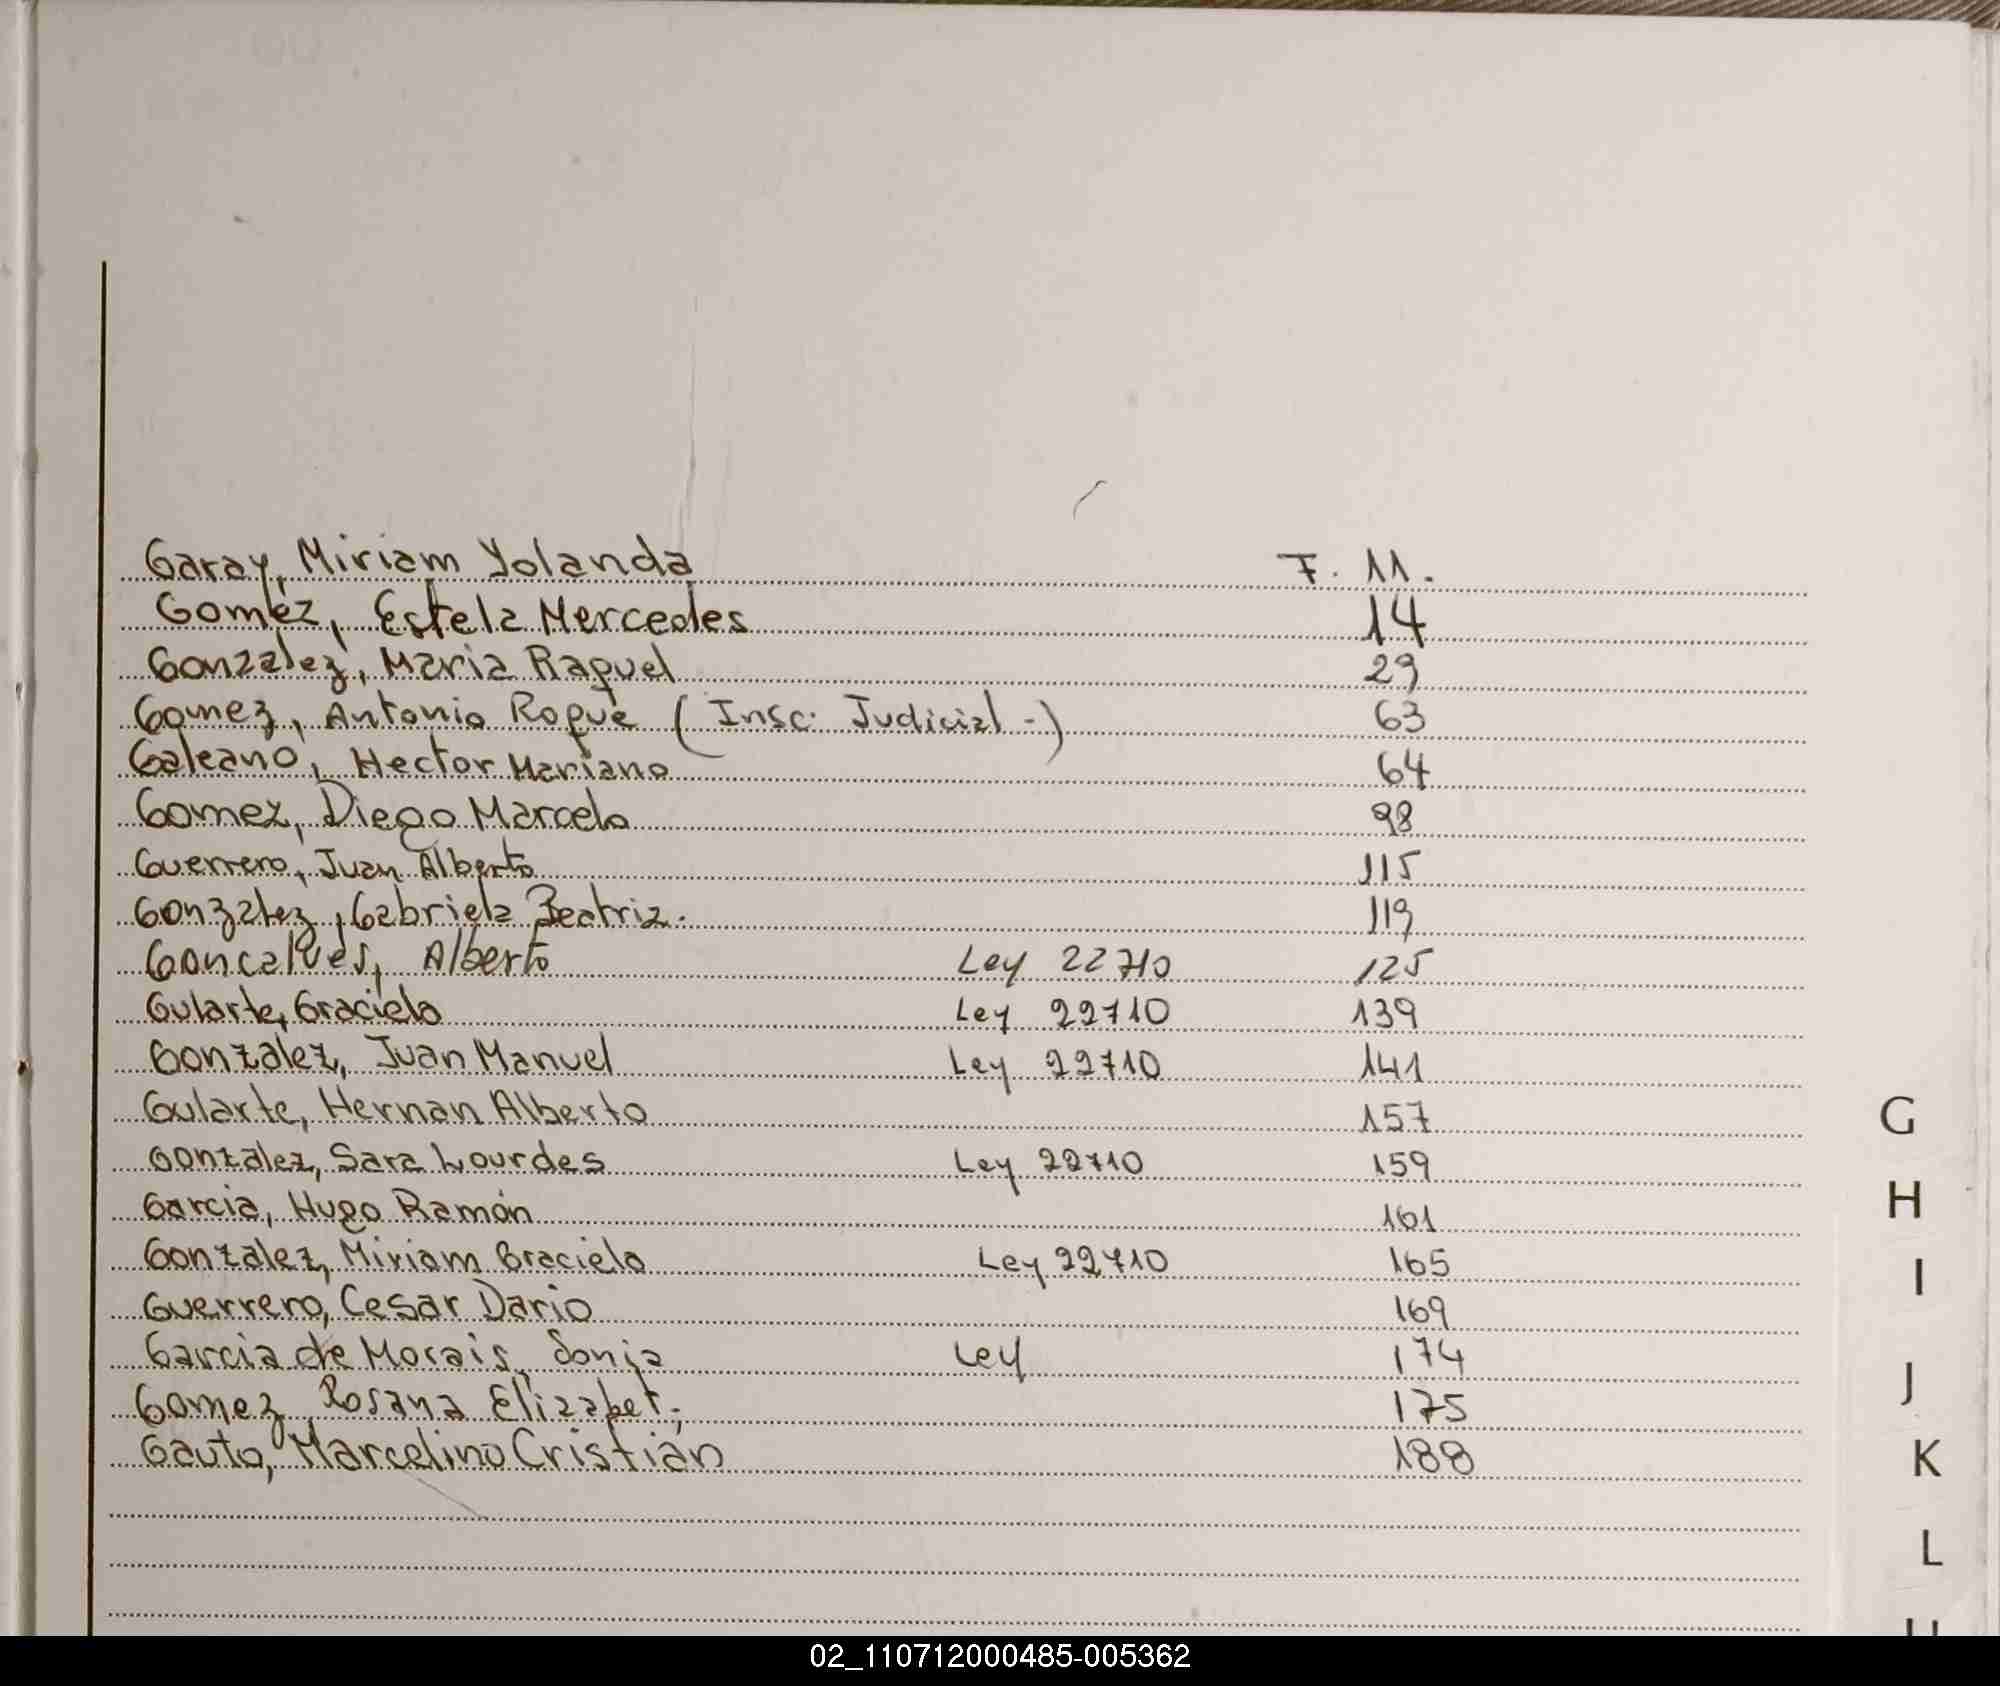 Garay, Miriam Yolanda F. 11.
Gomez, Estela Mercedes 14
Gonzalez, Maria Raquel 29
Gomez, Antonio Roque (Insc. Judicial -) 63
Galeano, Hector Mariano 64
Gomez, Diego Marcelo 98
Guerrero, Juan Alberto 115
Gonzalez, Gabriela Beatriz. 119
Goncalves, Alberto Ley 22710 125
Gularte, Graciela Ley 22710 139
Gonzalez, Juan Manuel Ley 22710 141
Gularte, Hernan Alberto 157
Gonzalez, Sara Lourdes Ley 22710 159
Garcia, Hugo Ramón 161
Gonzalez, Miriam Graciela Ley 22710 165
Guerrero, Cesar Dario 169
Garcia de Morais, Sonia Ley 174
Gomez, Rosana Elizabet.- 175
Gauto, Marcelino Cristián 188
G
H
I
J
K
L
02_110712000485-005362